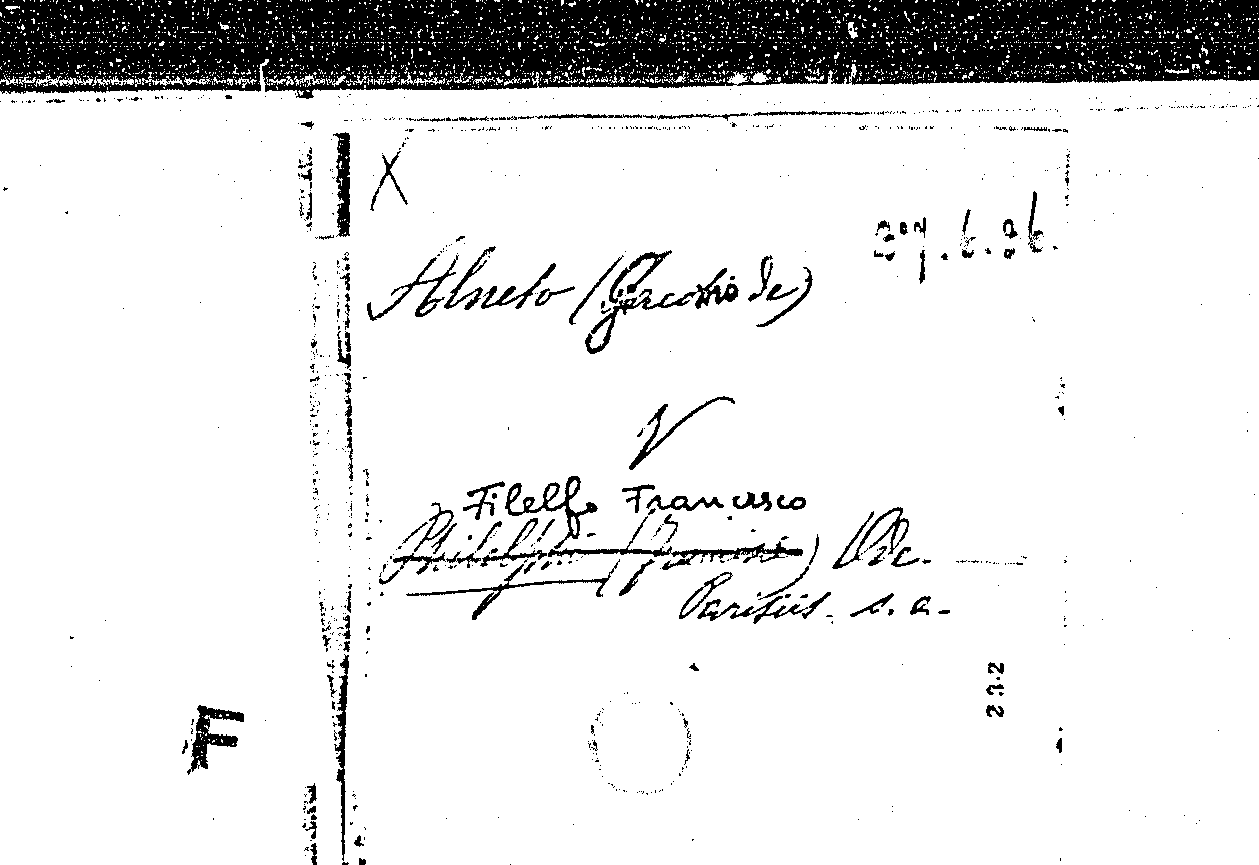 X
27.6.36.
Alneto (Giacomo de)
V
Filelfo Francesco
Philelphi (Francisci) Ode.
Parisiis. s. a.
232
F